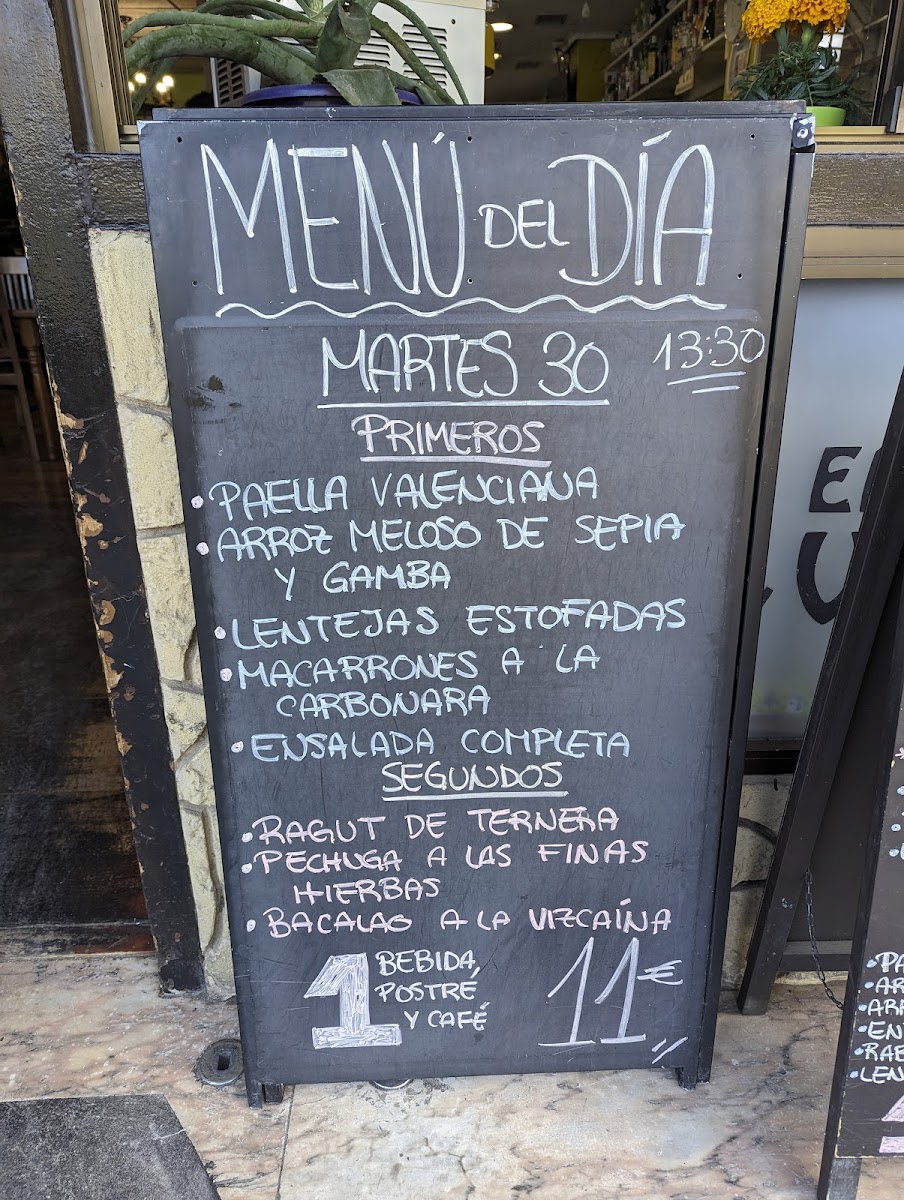 MENÚ DEL DÍA
MARTES 30
13:30
PRIMEROS
• PAELLA VALENCIANA
• ARROZ MELOSO DE SEPIA
Y GAMBA
• LENTEJAS ESTOFADAS
• MACARRONES A LA
CARBONARA
• ENSALADA COMPLETA
SEGUNDOS
• RAGUT DE TERNERA
• PECHUGA A LAS FINAS
HIERBAS
• BACALAO A LA VIZCAÍNA
1 BEBIDA,
POSTRE
Y CAFÉ
11€